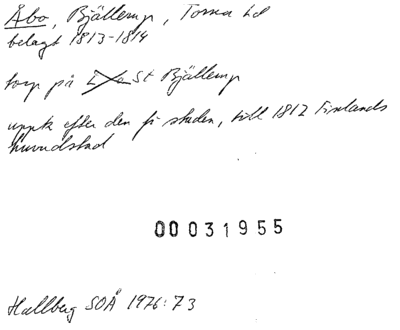 Åbo, Bjällerup, Torna hd
belagt 1813-1814
torp på St Bjällerup
uppk efter den fi staden, till 1812 Finlands
huvudstad
00031955
Hallberg SOÅ 1976:73